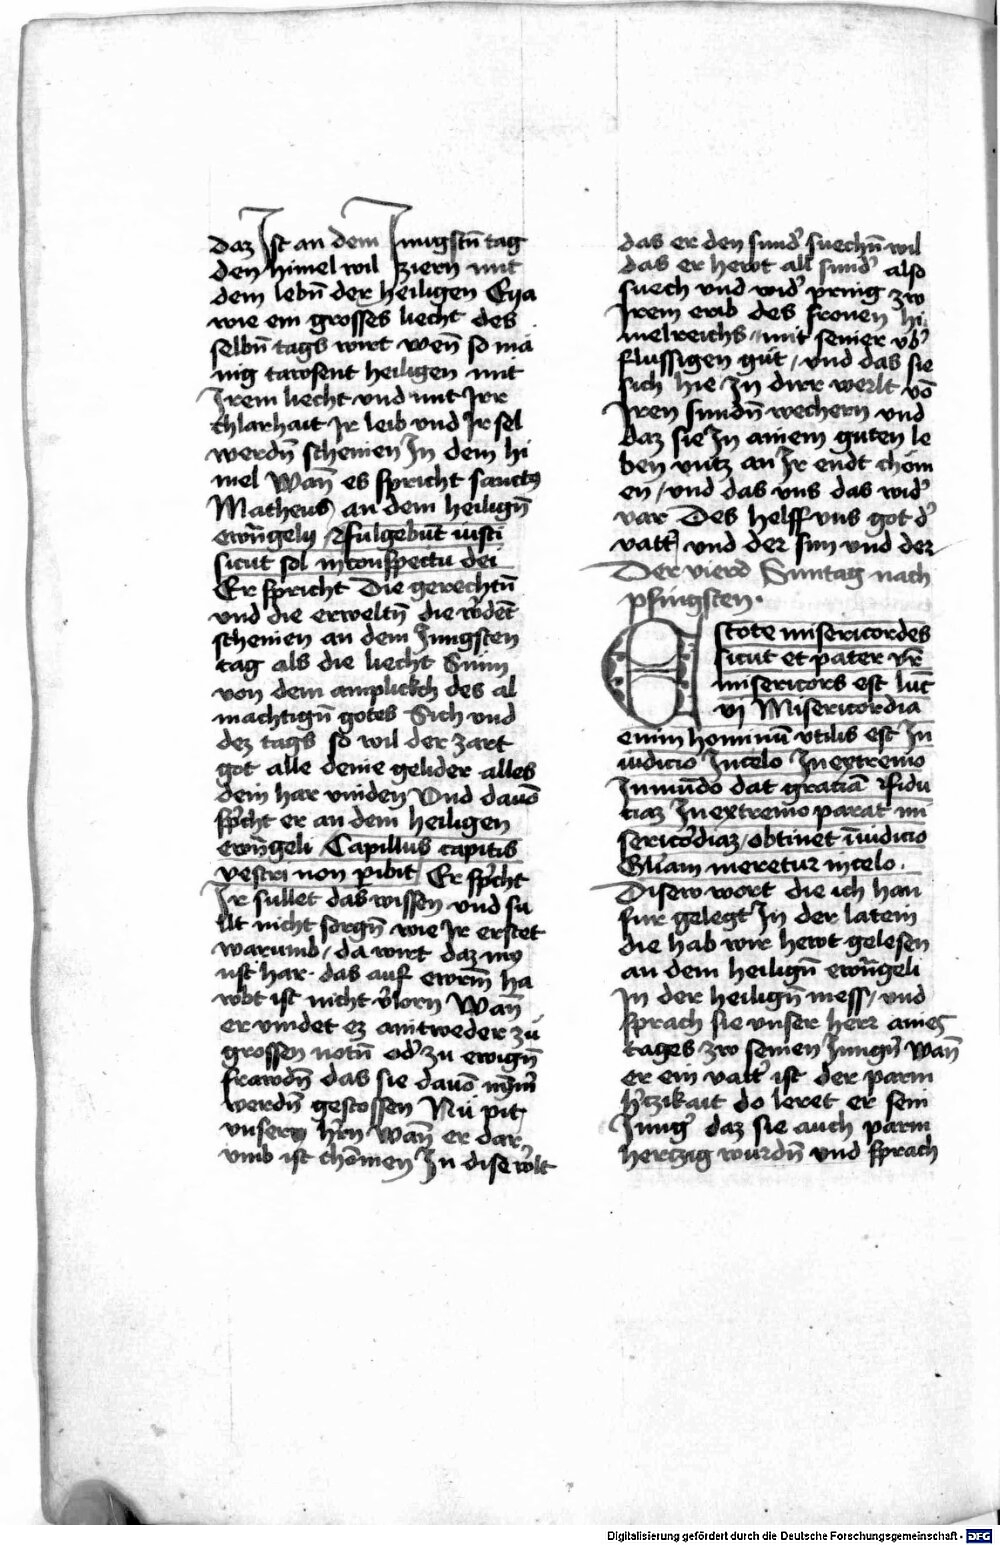 daz Ist an dem Jungstn̄ tag
den himel wil ziern mit
dem lebn̄ der heiligen Eya
wie ein grosses liecht des
selbn̄ tags wirt wen̄ so mā
nig tawsent heiligen mit
Irem liecht vnd mit Irr
chlarhait Ir leib vnd Ir sel
werdn̄ scheinen In dem hi
mel Wan̄ es spricht sanctus
Matheus an dem heilign̄
ewn̄gely Refulgebūt iusti
sicut sol in conspectu dei
Er spricht Die gerechtn̄
vnd die erweltn̄ die w'dēt
scheinen an dem Jungsten
tag als die liecht Sunn
von dem amplickch des al
machtign̄ gotes Sich vnd
dez tags so wil der zart
got alle deine gelider alles
dein har vinden Vnd dauō
sp'cht er an dem heiligen
ewn̄geli Capillus capitis
vestri non pibit Er sp'cht
Ir sullet das wissen vnd su
llt nicht sorgn̄ wie Ir erstet
warumb / da wirt daz myn
nist har das auf ewrm̄ ha
wbt ist nicht v'lorn Wan̄
er vindet ez aintweder zu
grossen notn̄ od' zu ewign̄
frawdn̄ das sie dauō nȳm'
werdn̄ gestossen Nu pit
vnsern h'rn Wan̄ er dar
vmb ist chōmen In dise w'lt
das er den sund' suechn̄ wil
das er hewt all sund' also
suech vnd wid' pring zw
Irem erib des fronen hi
melreichs / mit seiner vb'
flussigen gut / vnd das sie
sich hie In dirr werlt vō
Iren sundn̄ wechern vnd
daz sie In ainem guten le
ben vntz an Ir endt chōm
en / vnd das vns das wid'
var Des helff vns got d'
vatt' vnd der sun vnd der
Der vierd Suntag nach
pfingsten.
Estote misericordes
sicut et pater vr̄
misericors est luc̄
vj Misericordia
enim hominū vtilis est In
iudicio In celo In extremo
In mūdo dat graciā 2fidu
ciaz In extremo parat mi
sericordiaz / obtinet ī iudicio
Gl'iam meretur in celo.
Disew wort die ich han
fur gelegt In der latein
die hab wir hewt gelesen
an dem heilign̄ ewn̄geli
In der heilign̄ mess / vnd
sprach sie vnser herr aines
tages zw seinen Jungn̄ Wan̄
er ein vatt' ist der parm
h'tzikait do leret er sein
Jung' daz sie auch parm
hertzig wurdn̄ vnd sprach
Digitalisierung gefördert durch die Deutsche Forschungsgemeinschaft - DFG